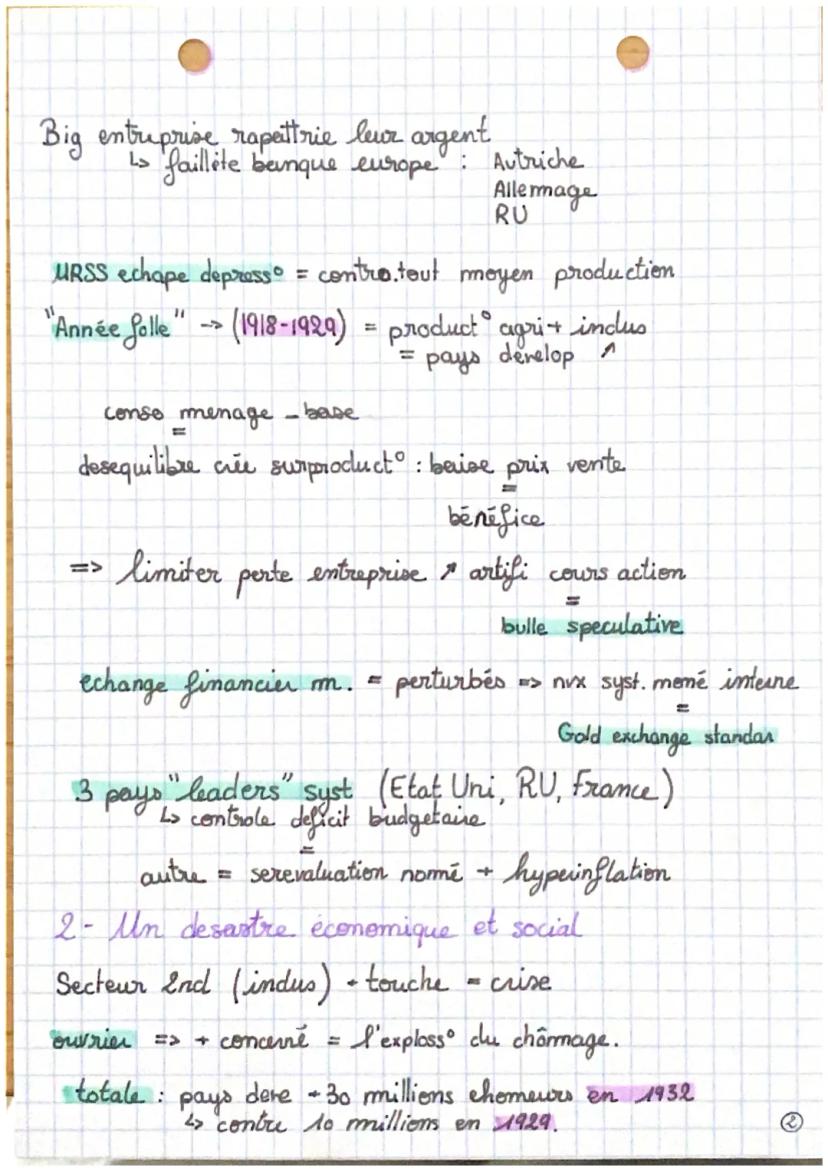 Big entreprise rapattrie leur argent
↳ faillète banque europe : Autriche
Allemage
RU
URSS echape depress° = contro.tout moyen production
"Année folle" -> (1918-1929) = product° agri + indus
= pays dévelop ↗
conso menage - base
=
desequilibre crée surproduct° : baise prix vente
=
bénéfice
=> limiter perte entreprise ↗ artifi cours action
=
bulle speculative
echange financier m. = perturbés => nvx syst. moné interne
=
Gold exchange standar
3 pays "leaders" syst (Etat Uni, RU, France)
↳ controle deficit budgetaire
=
autre = serevaluation nomé + hyperinflation
2- Un desastre économique et social
Secteur 2nd (indus) + touche = crise
ouvrier => + concerné = l'exploss° du chômage.
totale : pays deve + 30 millions chomeurs en 1932
↳ contre 10 millions en 1929.
②